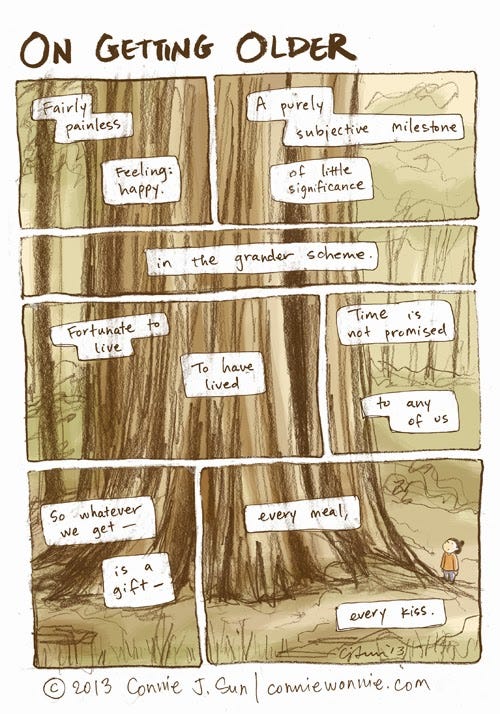 ON GETTING OLDER
Fairly
painless
Feeling:
happy.
A purely
subjective milestone
of little
significance
in the grander scheme.
Fortunate to
live
To have
lived
Time is
not promised
to any
of us
So whatever
we get —
is a
gift —
every meal,
every kiss.
CJSun '13
© 2013 Connie J. Sun | conniewonnie.com